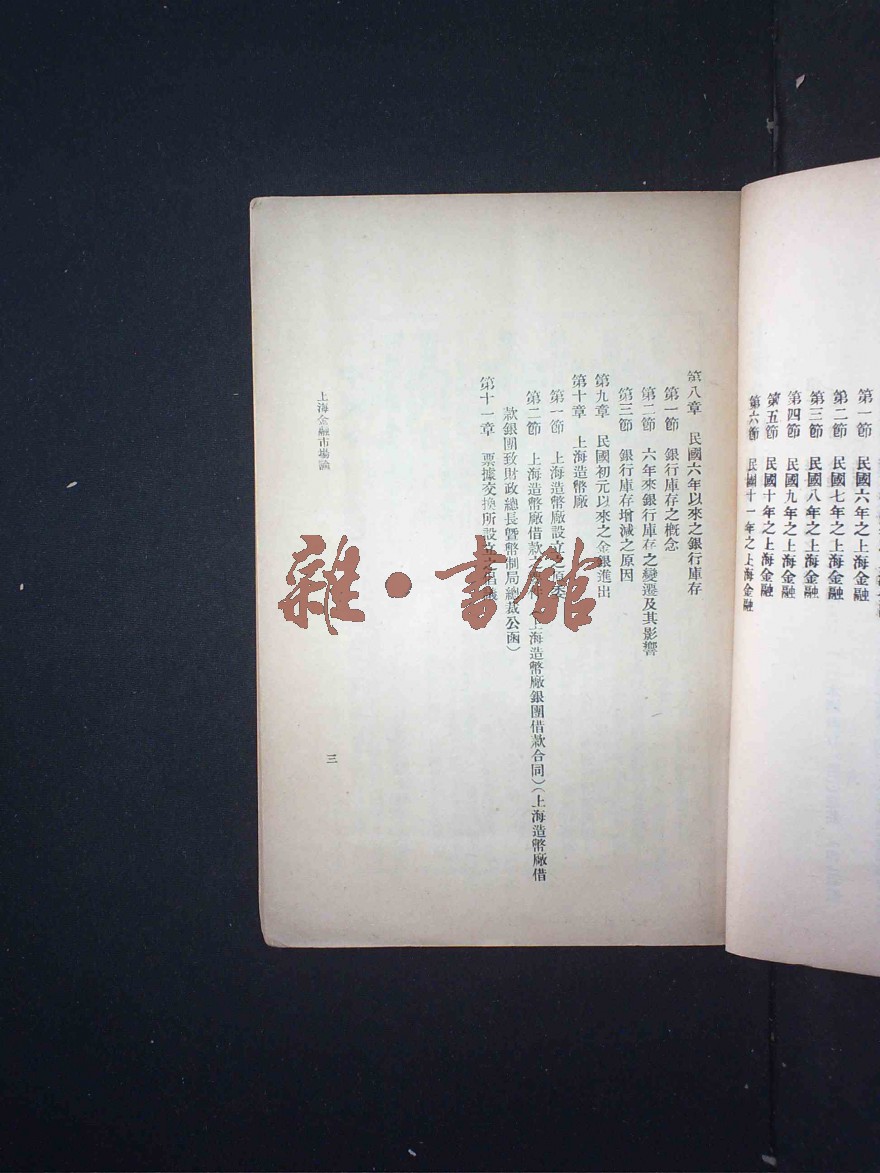 第一節　民國六年之上海金融
第二節　民國七年之上海金融
第三節　民國八年之上海金融
第四節　民國九年之上海金融
第五節　民國十年之上海金融
第六節　民國十一年之上海金融
第八章　民國六年以來之銀行庫存
第一節　銀行庫存之概念
第二節　六年來銀行庫存之變遷及其影響
第三節　銀行庫存增減之原因
第九章　民國初元以來之金銀進出
第十章　上海造幣廠
第一節　上海造幣廠設立之
第二節　上海造幣廠借款　上海造幣廠銀團借款合同）（上海造幣廠借
款銀團致財政總長曁幣制局總裁公函）
第十一章　票據交換所設立之
上海金融市場論
三
雜・書館